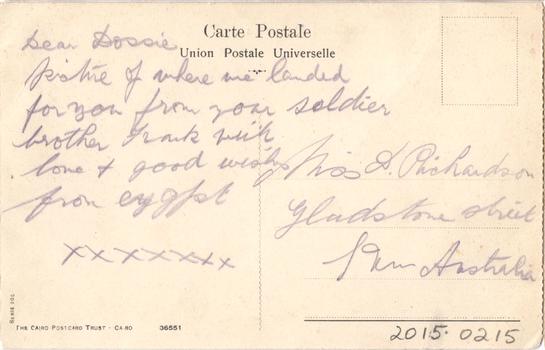 Carte Postale
Union Postale Universelle
Dear Dossie
Picture of where we landed
for you from your soldier
brother Frank with
love + good wishes
from egypt
xxxxxxx
Miss D. Richardson
Gladstone street
Australia
SERIE 201
THE CAIRO POSTCARD TRUST - CAIRO 36551
2015.0215